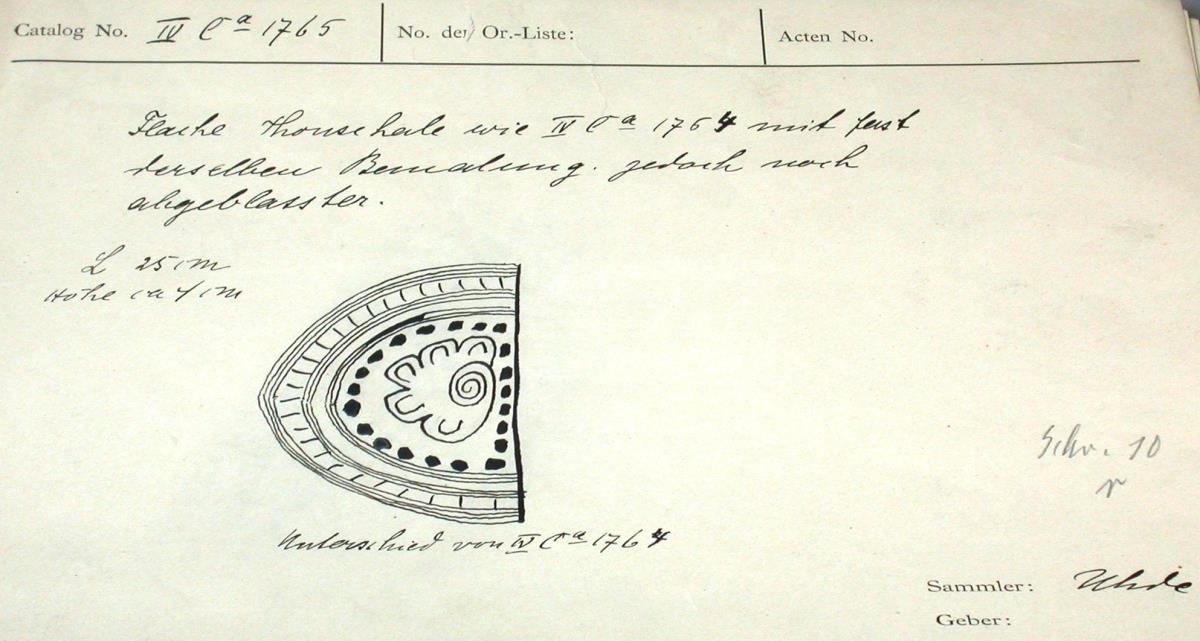 Catalog No. IV Ca 1765 No. der Or.-Liste: Acten No.
Flache Thonschale wie IV Ca 1764 mit fast
derselben Bemalung. jedoch noch
abgeblasster.
L 25 cm
Höhe ca 4 cm
Unterschied von IV Ca 1764
Schr. 10
r
Sammler: Uhde
Geber: